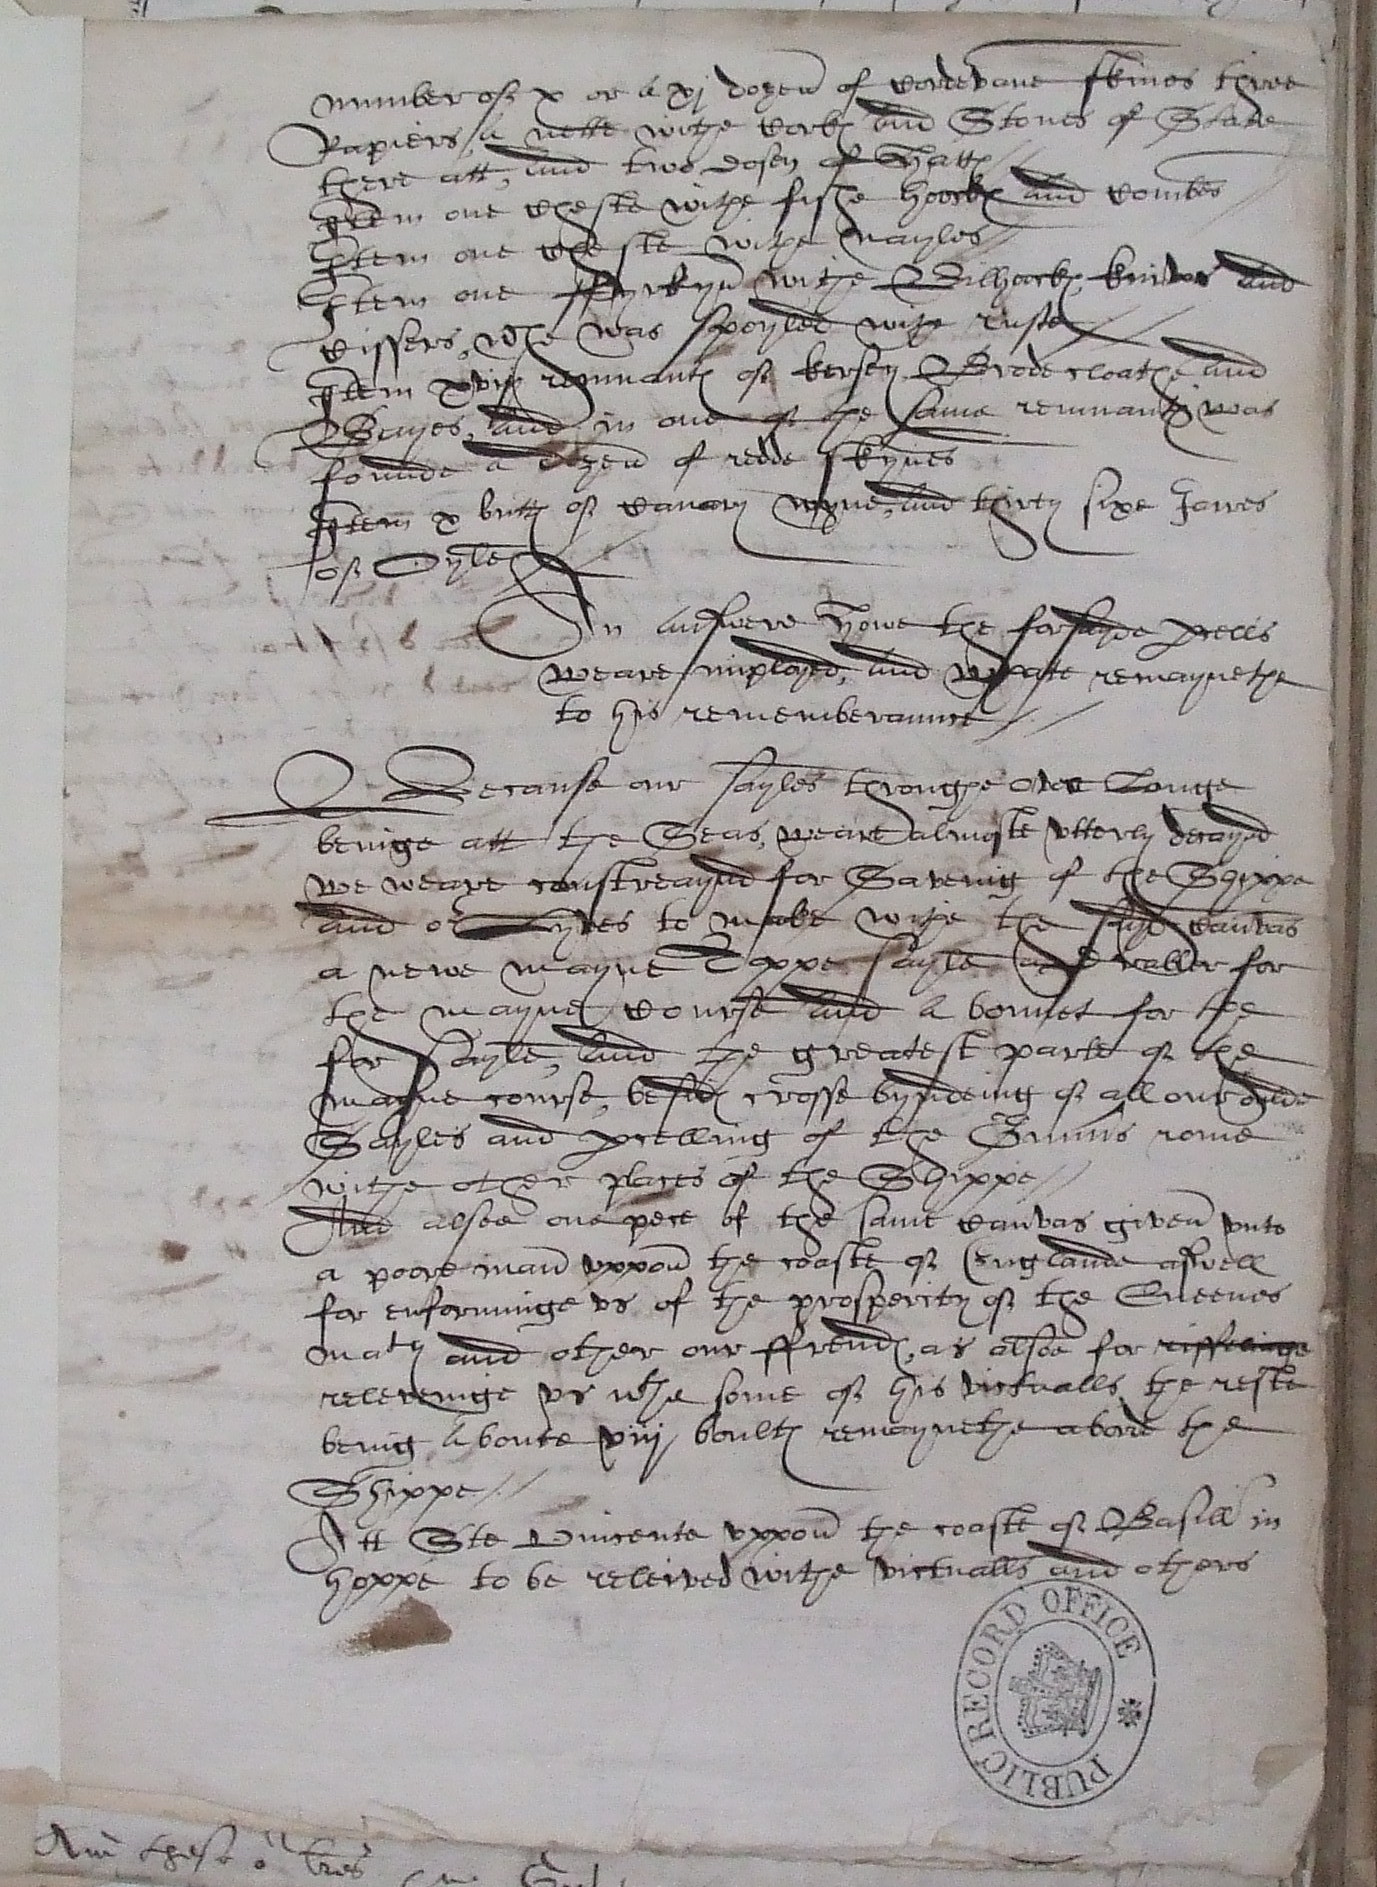 number of x or a xj dozen of Cordevane skines three
Rapiers, a nette withe Corke and Stones of Slate
there att, and two dosen of Hattes
Item one Cheste withe fishe hoockes and Combes
Item one Cheste withe nayles
Item one ffyrkyn withe Billhoockes, knives and
Cissers, wche was spoyled withe ruste
Item xviij remnantes of kersey Brode cloathe and
Bayes, and in one of the same remnantes was
founde a dozen of redde skynes
Item x buttes of Canary wyne, and thirty sixe Jarres
of Oyle
An answere howe the forsayde pcells
weare imployed, and whate remaynethe
to his rememberaunce
Because our sayles throughe over Longe
beinge att the Seas, weare almoste utterly decayed
we weare constreayned for Saveing of the Shippe
and or Lyves to make withe the sayd Canvas
a newe mayne Toppe sayle a for
the mayne Course and a bonnet for the
for Sayle, and the greatest parte of the
mayne course, besydes crosse byndeing of all our oylde
Sayles and pcelling of the Gunns rome
withe other places of the Shippe
And alsoe one pece of the same Canvas given unto
a poore man uppon the coaste of Englande aswell
for enforminge us of the prosperity of the Queenes
maty and other our ffrendes, as alsoe for riffelinge
releveinge us wthe some of his victualls, the reste
being aboute viij boultes remaynethe abord the
Shippe
Att Ste Vincente uppon the coaste of Brasill in
hoppe to be releived withe victualls and others
PUBLIC RECORD OFFICE